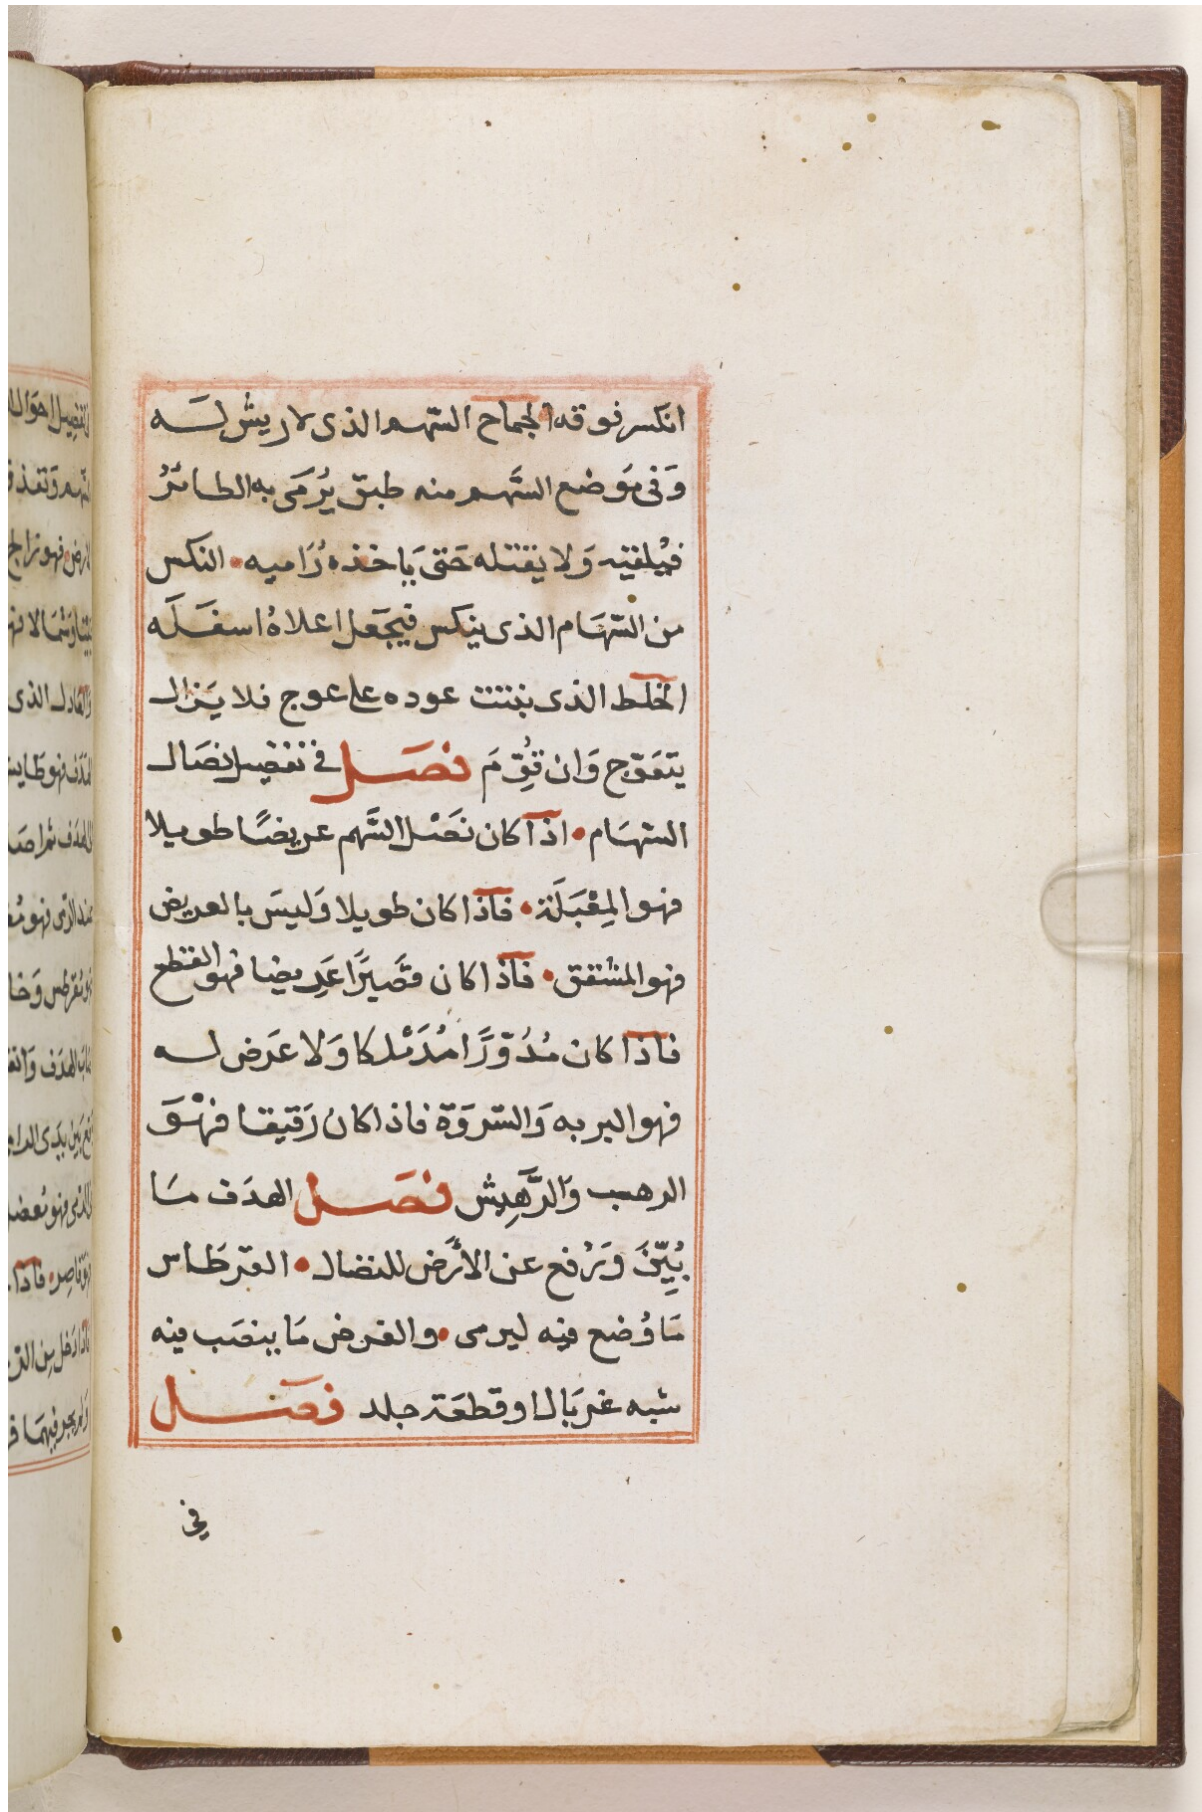 انكسر فوقه الجماح السّهم الذى لا ريش له
وَفى مَوضع السَّهم منه طبق يُرمَى به الطائرُ
فيُلقيه وَلا يقتله حَتى يَاخذه رَاميه • النكس
من السّهَام الذى ينكس فيجَعل اعلاهُ اسفَلَه
الخلط الذى ينبت عوده على عوج فلا يَزال
يتعَوّج وَان قُوِّمَ فصَل فى تفصيل نصَال
السهَام • اذا كان نَصْل السَّهم عريضًا طويلا
فهو المِعْبَلَة • فاذا كان طويلا وَليسَ بالعريض
فهو المشقق • فاذا كان قصَيرًا عَريضا فهو القطع
فاذا كان مُدُوّرًا مُدَمْلكا وَلا عَرض له
فهو السربه وَالسّروَة فاذا كان رَقيقا فهْوَ
الرهب وَالرَّهِيش فصَل الهدَف مَا
بُيِّنَ وَرُفع عن الأرَض للنضال • القرطَاس
مَا وُضع فيه ليرمى • والغرض مَا ينصَب فيه
شبه غربَال او قطعَة جلد فصَل
في